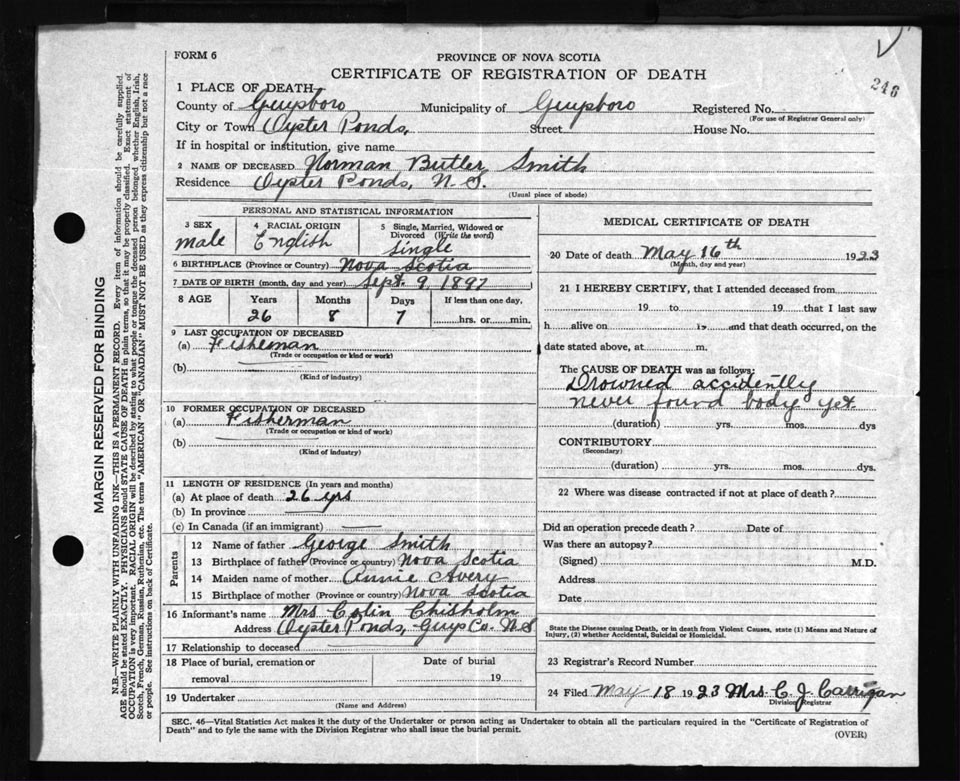 FORM 6
PROVINCE OF NOVA SCOTIA
CERTIFICATE OF REGISTRATION OF DEATH
246
1 PLACE OF DEATH
County of Guysboro Municipality of Guysboro Registered No.
(For use of Registrar General only)
City or Town Oyster Ponds, Street House No.
If in hospital or institution, give name
2 NAME OF DECEASED Norman Butler Smith
Residence Oyster Ponds, N.S.
(Usual place of abode)
PERSONAL AND STATISTICAL INFORMATION
3 SEX 4 RACIAL ORIGIN 5 Single, Married, Widowed or Divorced (Write the word)
male English Single
6 BIRTHPLACE (Province or Country) Nova Scotia
7 DATE OF BIRTH (month, day and year) Sept. 9, 1897
8 AGE Years Months Days If less than one day,
26 8 7 hrs. or min.
9 LAST OCCUPATION OF DECEASED
(a) Fisheman
(Trade or occupation or kind or work)
(b)
(Kind of industry)
10 FORMER OCCUPATION OF DECEASED
(a) Fisherman
(Trade or occupation or kind of work)
(b)
(Kind of industry)
11 LENGTH OF RESIDENCE (In years and months)
(a) At place of death 26 yrs
(b) In province
(c) In Canada (if an immigrant)
Parents
12 Name of father George Smith
13 Birthplace of father (Province or country) Nova Scotia
14 Maiden name of mother Annie Avery
15 Birthplace of mother (Province or country) Nova Scotia
16 Informant's name Mrs. Colin Chisholm
Address Oyster Ponds, Guys Co. N.S
17 Relationship to deceased
18 Place of burial, cremation or removal
Date of burial
19
19 Undertaker
(Name and Address)
MEDICAL CERTIFICATE OF DEATH
20 Date of death May 16th 1923
(Month, day and year)
21 I HEREBY CERTIFY, that I attended deceased from
19 to 19 that I last saw
h alive on 19 and that death occurred, on the
date stated above, at m.
The CAUSE OF DEATH was as follows:
Drowned accidently
never found body yet
(duration) yrs. mos. dys
CONTRIBUTORY
(Secondary)
(duration) yrs. mos. dys.
22 Where was disease contracted if not at place of death?
Did an operation precede death? Date of
Was there an autopsy?
(Signed) M.D.
Address
Date
State the Disease causing Death, or in death from Violent Causes, state (1) Means and Nature of
Injury, (2) whether Accidental, Suicidal or Homicidal.
23 Registrar's Record Number
24 Filed May 18 1923 Mrs. C. J. Carrigan
Division Registrar
SEC. 46—Vital Statistics Act makes it the duty of the Undertaker or person acting as Undertaker to obtain all the particulars required in the "Certificate of Registration of
Death" and to fyle the same with the Division Registrar who shall issue the burial permit.
(OVER)
MARGIN RESERVED FOR BINDING
N.B.—WRITE PLAINLY WITH UNFADING INK—THIS IS A PERMANENT RECORD. Every item of information should be carefully supplied.
AGE should be stated EXACTLY. PHYSICIANS should STATE CAUSE OF DEATH in plain terms, so that it may be properly classified. Exact statement of
OCCUPATION is very important. RACIAL ORIGIN will be described by stating to what people or tongue the deceased person belonged whether English, Irish,
Scotch, French, German, Russian, Ruthenian, etc. The terms "AMERICAN" OR "CANADIAN" MUST NOT BE USED as they express citizenship but not a race
or people. See instructions on back of Certificate.